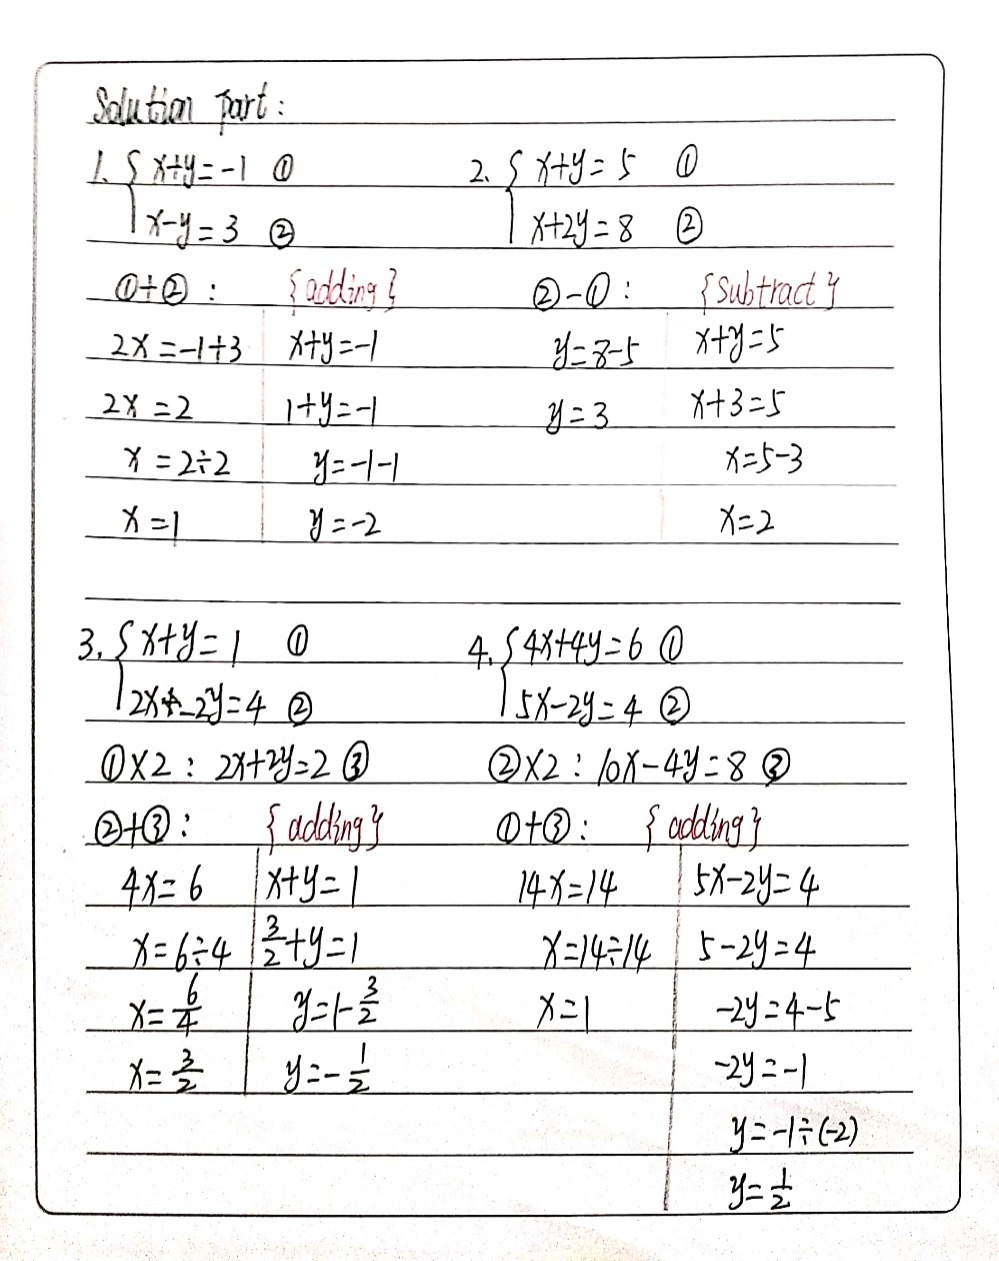 Solution Part:
1. { x+y=-1 ①
x-y=3 ②
①+②: {adding}
2x=-1+3 x+y=-1
2x=2 1+y=-1
x=2÷2 y=-1-1
x=1 y=-2
2. { x+y=5 ①
x+2y=8 ②
②-①: {Subtract}
y=8-5 x+y=5
y=3 x+3=5
x=5-3
x=2
3. { x+y=1 ①
2x-2y=4 ②
①×2: 2x+2y=2 ③
②+③: {adding}
4x=6 x+y=1
x=6÷4 3/2+y=1
x=6/4 y=1-3/2
x=3/2 y=-1/2
4. { 4x+4y=6 ①
5x-2y=4 ②
②×2: 10x-4y=8 ③
①+③: {adding}
14x=14 5x-2y=4
x=14÷14 5-2y=4
x=1 -2y=4-5
-2y=-1
y=-1÷(-2)
y=1/2